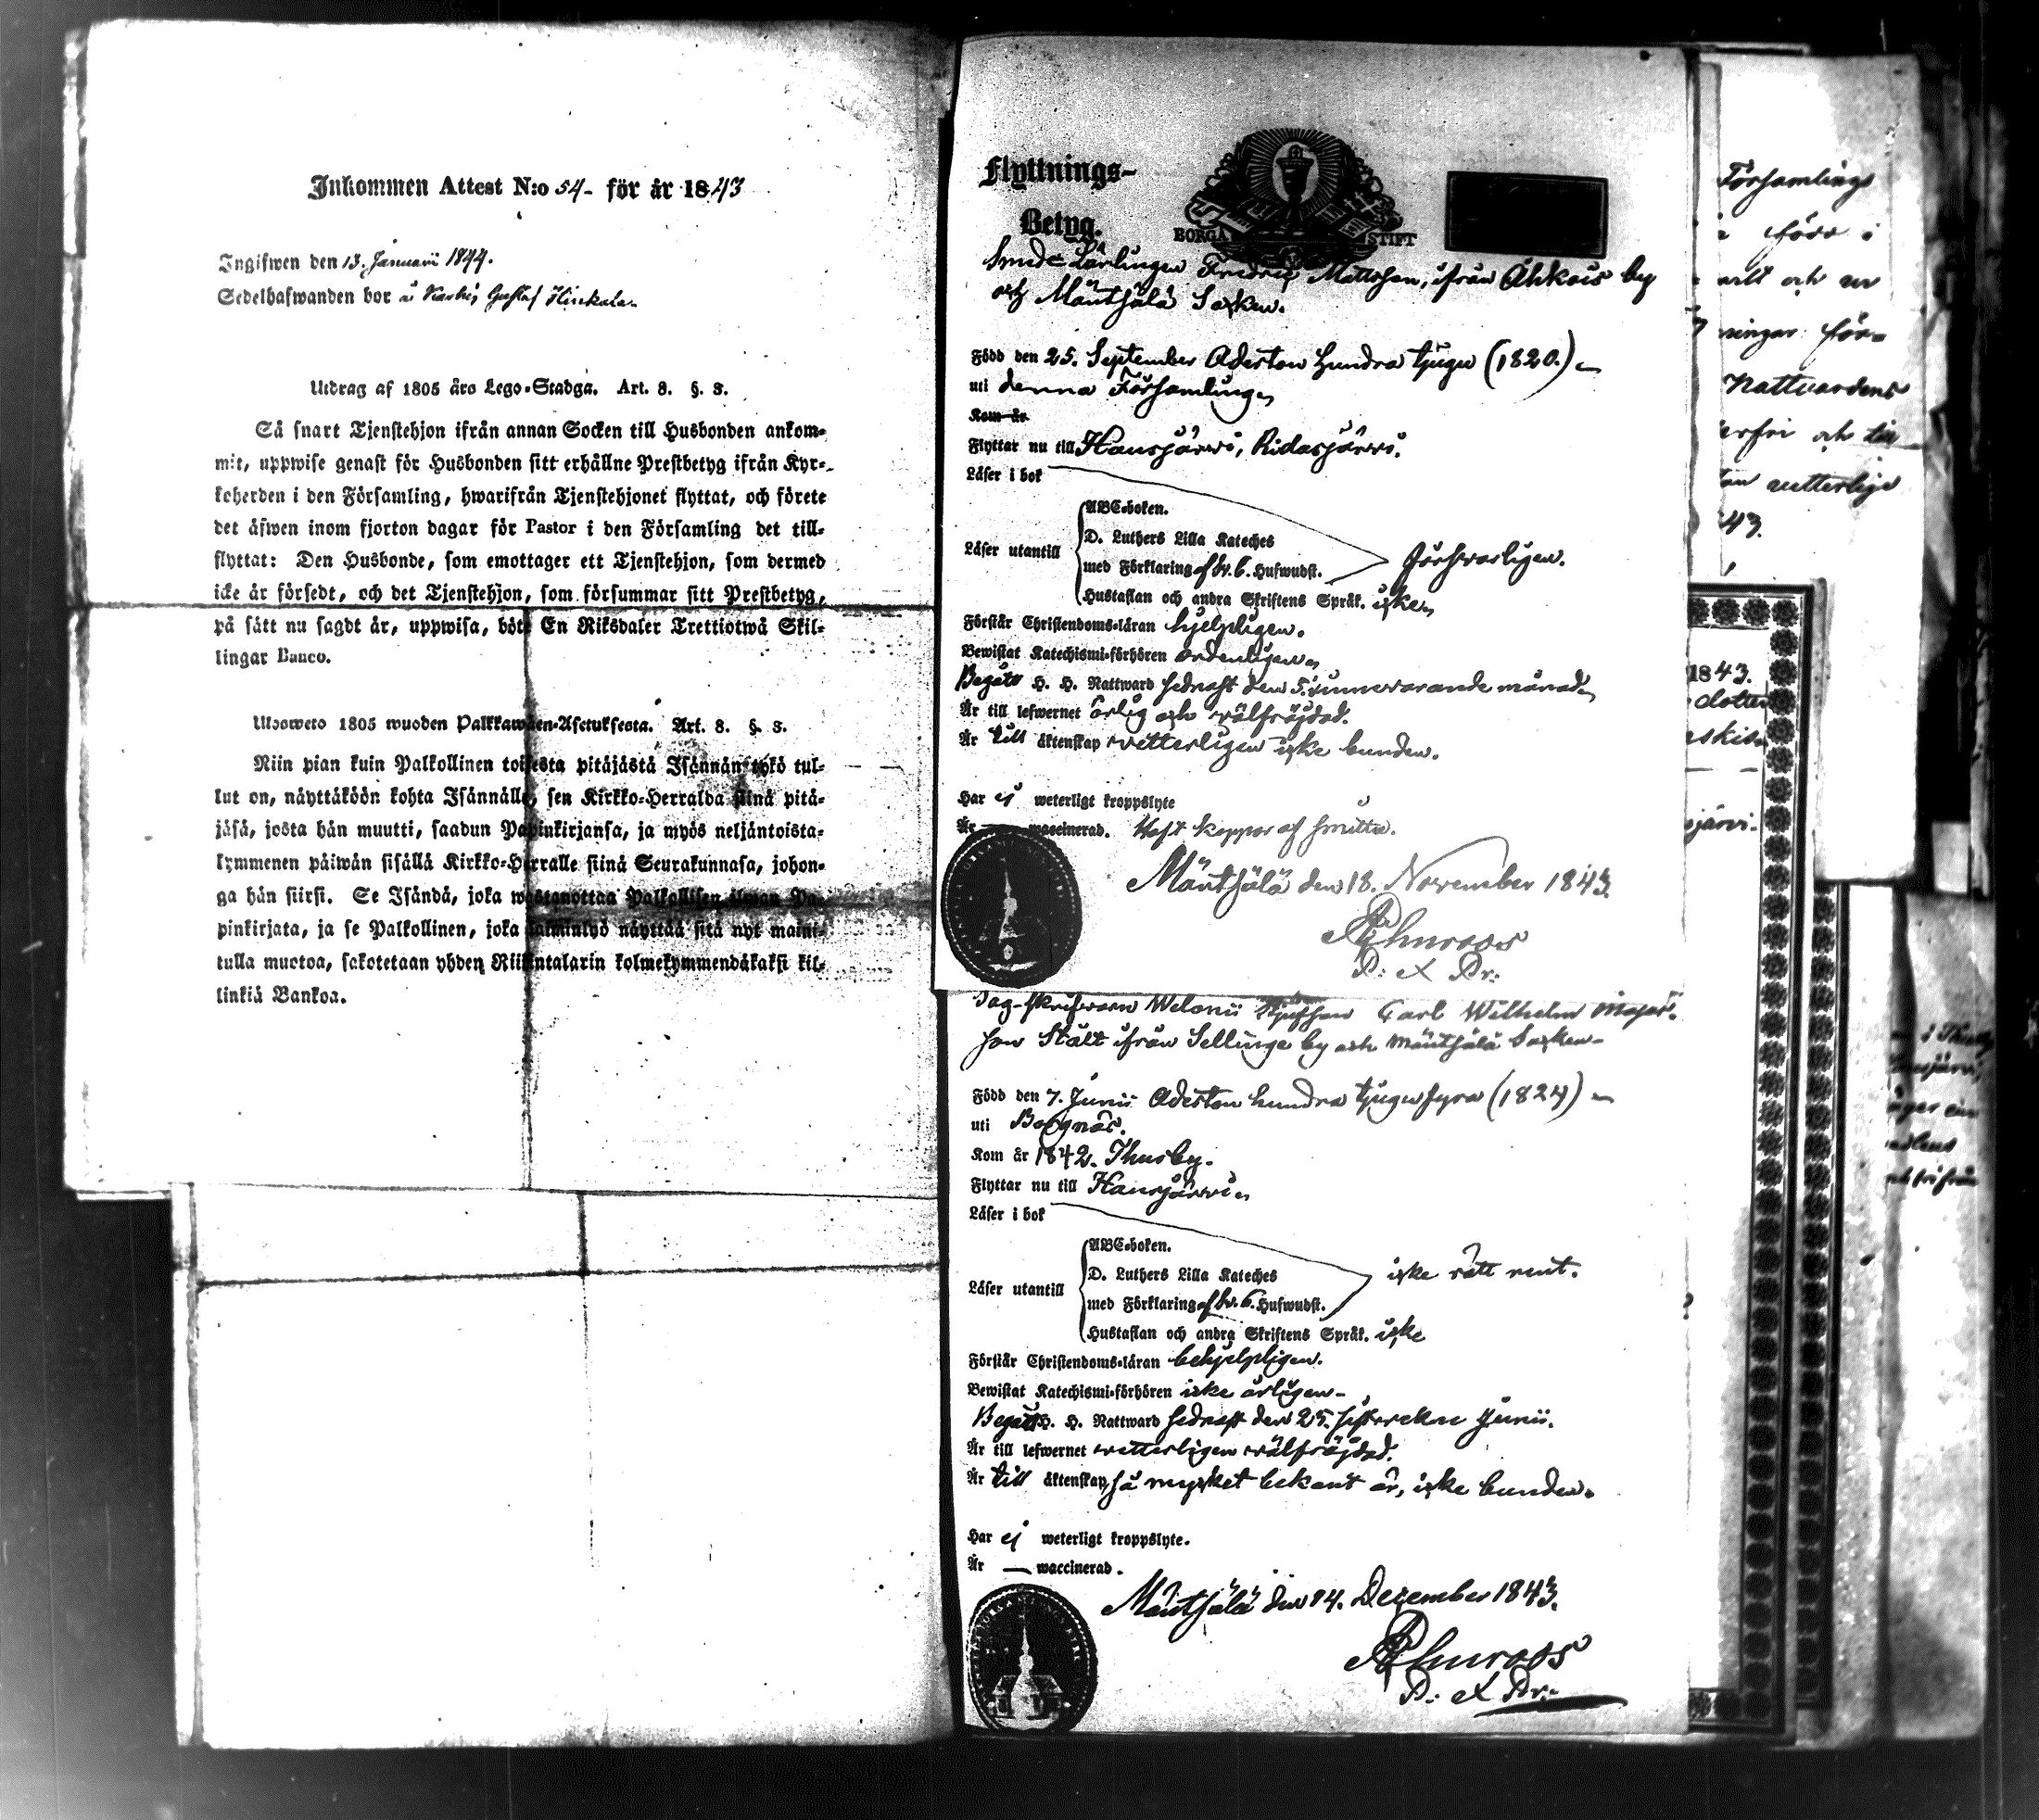 Inkommen Attest N:o 54 - för år 1843
Ingifwen den 13. Januarii 1844.
Sedelhafwanden bor å Karhi, Gustaf Hirekala
Utdrag af 1805 års Lego-Stadga. Art. 8. §. 3.
Så snart Tjenstehjon ifrån annan Socken till Husbonden ankom-
mit, uppwise genast för Husbonden sitt erhållne Prestbetyg ifrån Kyr-
koherden i den Församling, hwarifrån Tjenstehjonet flyttat, och förete
det äfwen inom fjorton dagar för Pastor i den Församling det till-
flyttat: Den Husbonde, som emottager ett Tjenstehjon, som dermed
icke är försedt, och det Tjenstehjon, som försummar sitt Prestbetyg,
på sätt nu sagdt är, uppwisa, böte En Riksdaler Trettiotwå Skil-
lingar Banco.
Ulosweto 1805 wuoden Palkkawäen-Asetuksesta. Art. 8. §. 3.
Niin pian kuin Palkollinen toisesta pitäjästä Isännän tykö tul-
lut on, näyttäköön kohta Isännälle, sen Kirkko-Herralda siinä pitä-
jäsä, josta hän muutti, saadun Papinkirjansa, ja myös neljäntoista-
kymmenen päiwän sisällä Kirkko-Herralle siinä Seurakunnasa, johon-
ga hän siirsi. Se Isändä, joka wastanottaa Palkollisen ilman Pa-
pinkirjata, ja se Palkollinen, joka laiminlyö näyttää sitä nyt maini-
tulla muotoa, sakotetaan yhden Riikintalarin kolmekymmendäkaksi kil-
linkiä Bankoa.
Flyttnings-
Betyg.
BORGÅ STIFT
Smeds Lärlingen Fredric Mattsson, ifrån Ahkois by
och Mäntsälä Socken.
Född den 25. September Aderton hundra tjugu (1820.)
uti denna Församling
Kom år
Flyttar nu till Hausjärwi, Ridasjärwi.
Läser i bok
Läser utantill
ABC-boken.
D. Luthers Lilla Kateches
med Förklaring af kr. 6. Hufwudst. försvarligen.
Hustaflan och andra Skriftens Språk. icke
Förstår Christendoms-läran hjelpligen.
Bewistat Katechismi-förhören ordenligen
Begått H. H. Nattward sednast den 5. innevarande månad
Är till lefwernet ärlig och välfräjdad.
Är till äktenskap vetterligen icke bunden.
Har ej weterligt kroppslyte
Är — waccinerad. Haft koppor af smitta.
Mäntsälä den 18. November 1843.
P: et Pr:
Carl Wilhelm Majas-
son Stålt ifrån Sellinge by och Mäntsälä Socken
Född den 7. Junii Aderton hundra tjugufyra (1824)
uti Borgnäs.
Kom år 1842. Thusby.
Flyttar nu till Hausjärwi
Läser i bok
Läser utantill
ABC-boken.
D. Luthers Lilla Kateches icke rätt rent.
med Förklaring af kr. 6. Hufwudst.
Hustaflan och andra Skriftens Språk. icke
Förstår Christendoms-läran behjelpligen.
Bewistat Katechismi-förhören icke årligen
Begått H. H. Nattward sednast den 25. sistvekne Junii.
Är till lefwernet vetterligen välfräjdad.
Är till äktenskap, så mycket bekant är, icke bunden.
Har ej weterligt kroppslyte.
Är — waccinerad.
Mäntsälä den 14. December 1843.
P: et Pr:
Församlings
före i
Nattvardens
vetterlige
43.
1843.
dotter
järvi